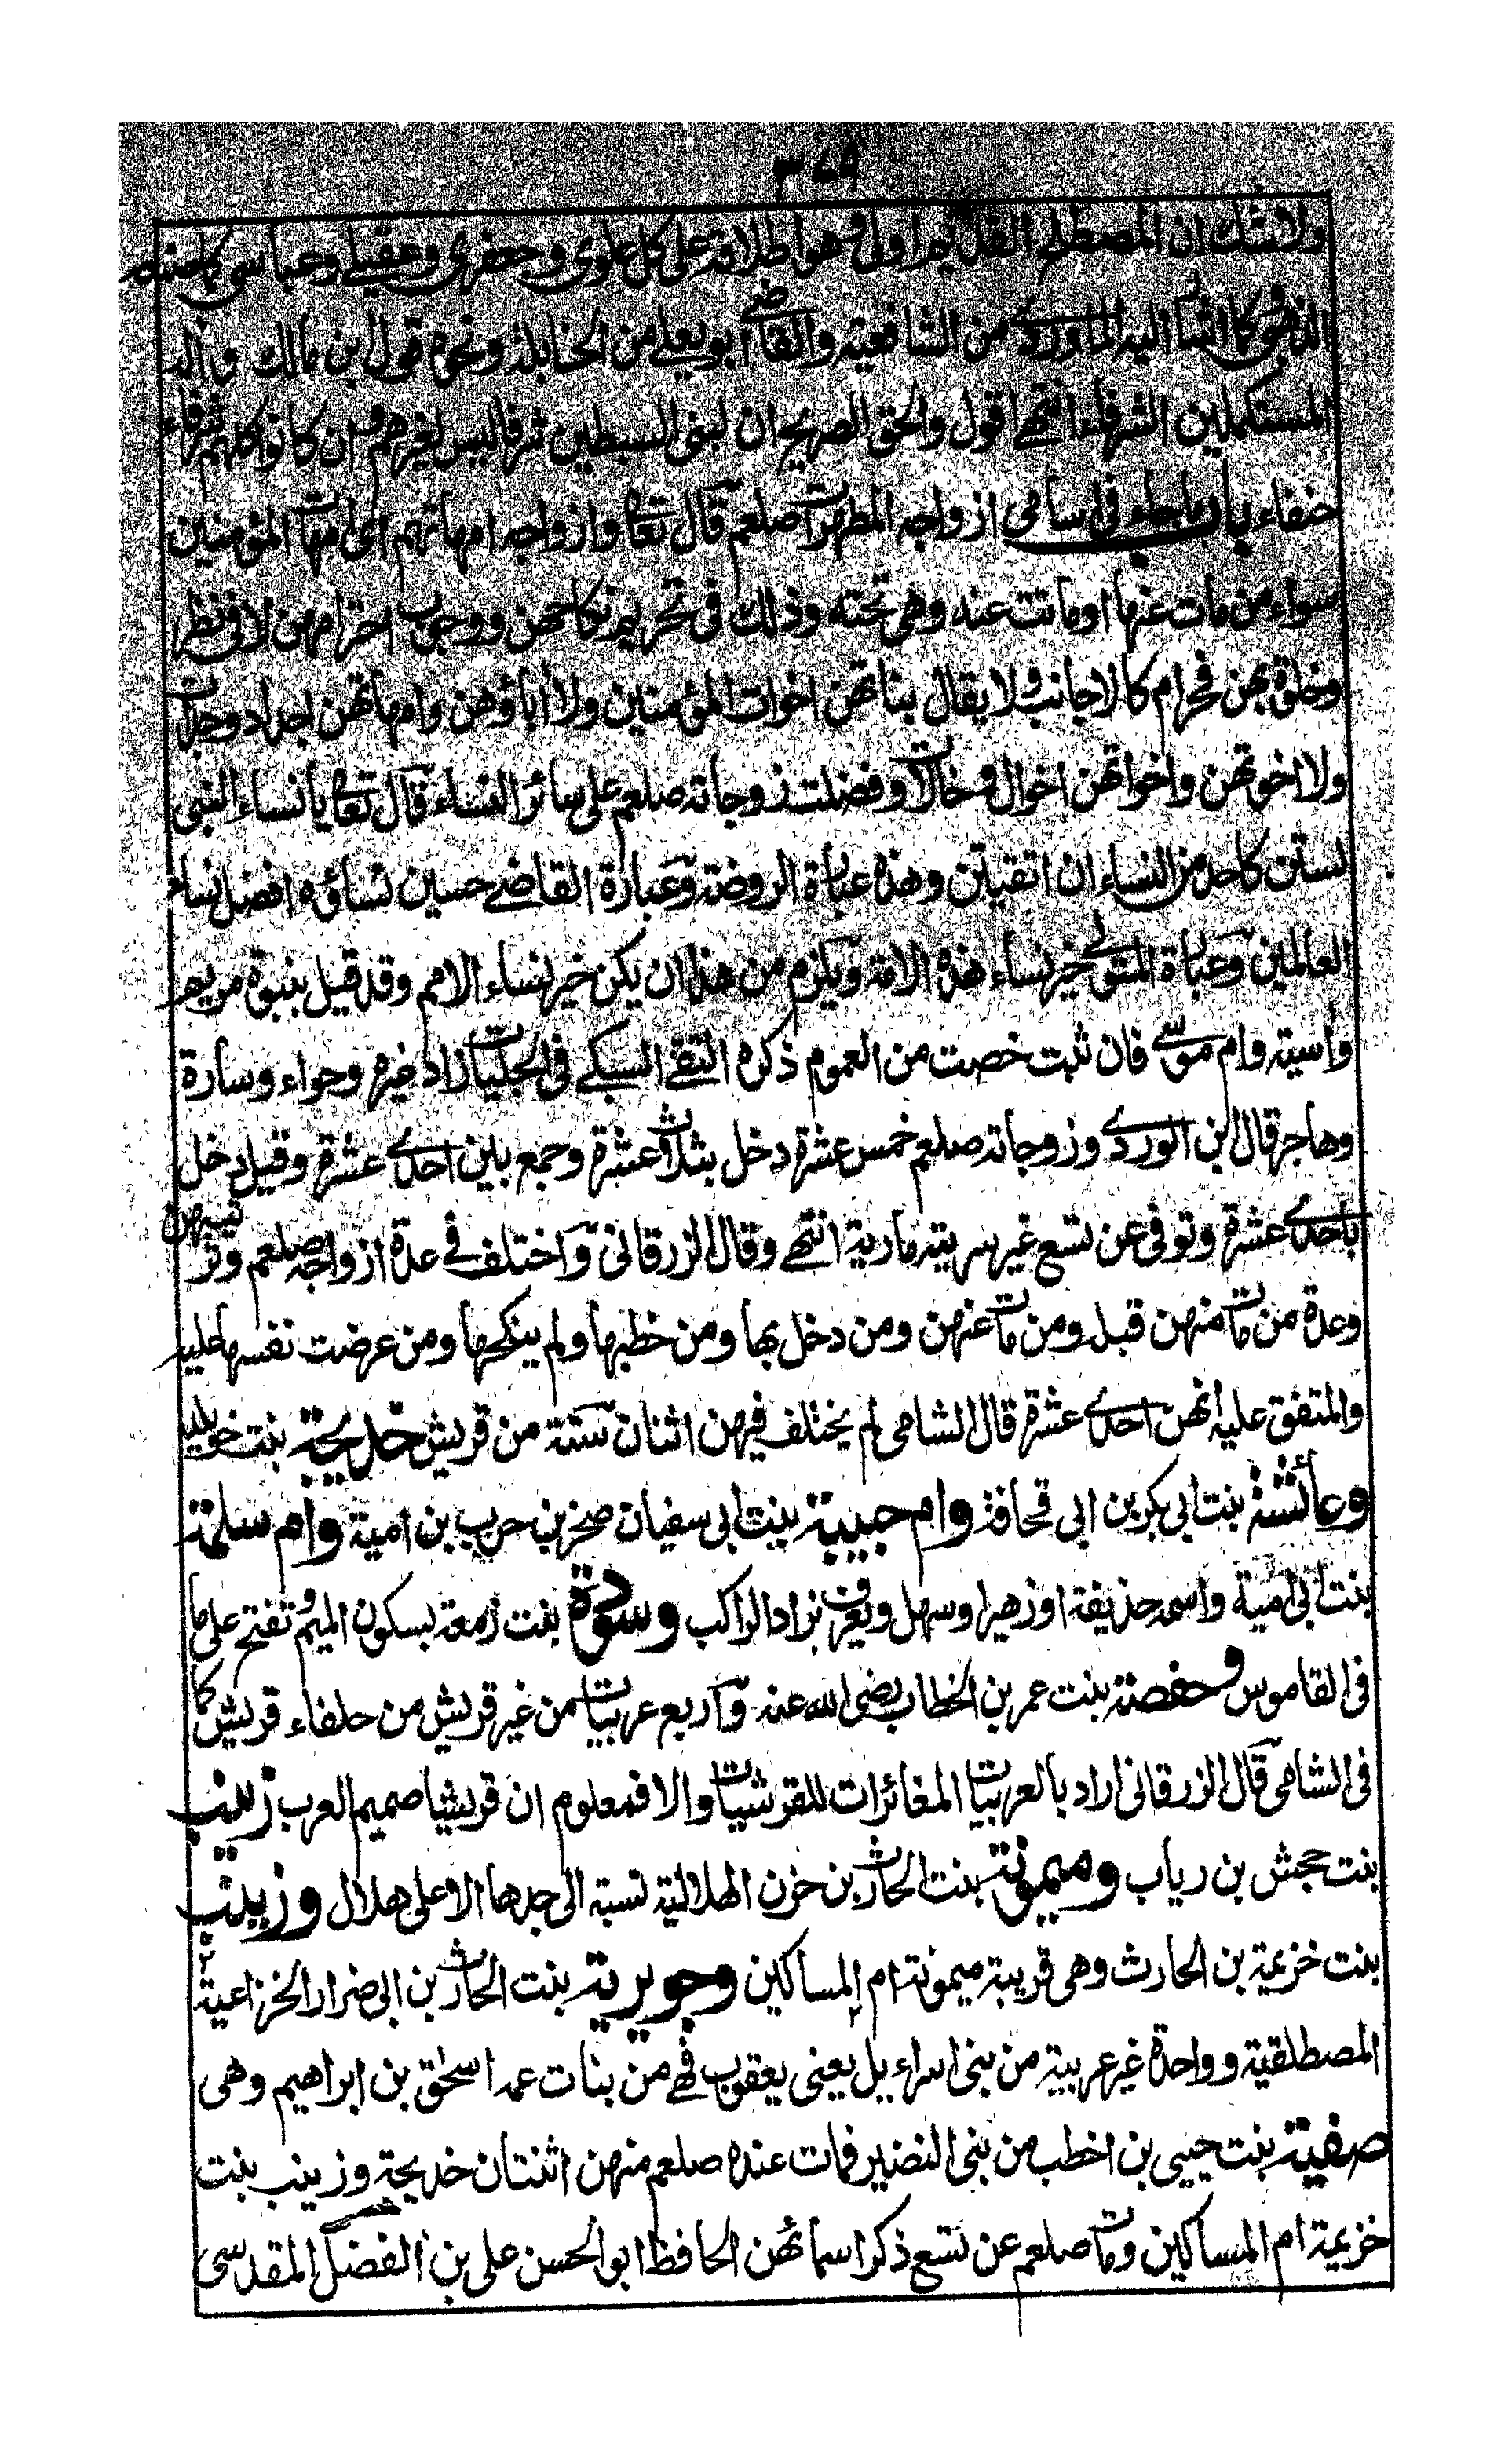 ٣٤٩
ولا شك ان المصطلح القديم اولى وهو اطلاقه على كل علوى وجعفرى وعقيلى وعباسى كما صنعه
الذهبى كما اشار اليه الماوردى من الشافعية والقاضى ابو يعلى من الحنابلة ونحوه قول ابن مالك واله
المستكملين الشرفاء انتهى اقول والحق الصريح ان لبنى السبطين شرفا ليس لغيرهم وان كانوا كلهم شرفاء
حنفاء باب ماجاء فى اسامى ازواجه المطهرات صلعم قال تعالى وازواجه امهاتهم اى امهات المؤمنين
سواء من مات عنها او ماتت عنه وهى تحته وذلك فى تحريم نكاحهن ووجوب احترامهن لا فى نظر
وخلوة بهن فحرام كالاجانب ولا يقال بناتهن اخوات المؤمنين ولا اباؤهن وامهاتهن اجداد وجدات
ولا اخوتهن واخواتهن اخوال وخالات وفضلت زوجاته صلعم على سائر النساء قال تعالى يا نساء النبى
لستن كاحد من النساء ان اتقيتن وهذه عبارة الروضة وعبارة القاضى حسين نساؤه افضل نساء
العالمين وعبارة المتولى خير نساء هذه الامة ويلزم من هذا ان يكن خير نساء الامم وقد قيل بنبوة مريم
وأسية وام موسى فان ثبت خصت من العموم ذكره التقى السبكى فى الحلبيات زاد غيره وحواء وسارة
وهاجر قال ابن الوردى وزوجاته صلعم خمس عشرة دخل بثلاث عشرة وجمع بين احدى عشرة وقيل دخل
باحدى عشرة وتوفى عن تسع غير سريته مارية انتهى وقال الزرقانى واختلف فى عدة ازواجه صلعم وترتيبهن
وعدة من مات منهن قبل ومن مات عنهن ومن دخل بها ومن خطبها ولم ينكحها ومن عرضت نفسها عليه
والمتفق عليه انهن احدى عشرة قال الشامى لم يختلف فيهن اثنان ستة من قريش خديجة بنت خويلد
وعائشة بنت ابى بكر بن ابى قحافة وام حبيبة بنت ابى سفيان صخر بن حرب بن امية وام سلمة
بنت ابى امية واسمه حذيفة او زهير او سهل ويعرف بزاد الراكب وسودة بنت زمعة بسكون الميم وتفتح على ما
فى القاموس وحفصة بنت عمر بن الخطاب رضى الله عنه واربع عربيات من غير قريش من حلفاء قريش كما
فى الشامى قال الزرقانى اراد بالعربيات المغائرات للقرشيات والا فمعلوم ان قريشيا صميم العرب زينب
بنت جحش بن رياب وميمونة بنت الحارث بن حزن الهلالية نسبة الى جدها الاعلى هلال وزينب
بنت خزيمة بن الحارث وهى قريبة ميمونة ام المساكين وجويرية بنت الحارث بن ابى ضرار الخزاعية
المصطلقية وواحدة غير عربية من بنى اسراءيل يعنى يعقوب فهى من بنات عمه اسحق بن ابراهيم وهى
صفية بنت حيى بن اخطب من بنى النضير فمات عنده صلعم منهن اثنتان خديجة وزينب بنت
خزيمة ام المساكين ومات صلعم عن تسع ذكر اسمائهن الحافظ ابو الحسن على بن الفضل المقدسى